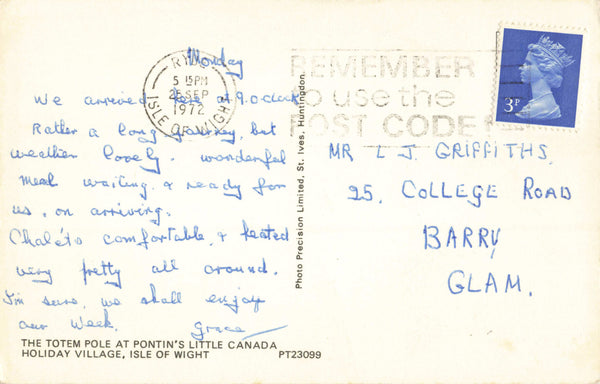 Monday
We arrived here at 9.oclock
Rather a long journey, but
weather lovely. wonderful
meal waiting & ready for
us, on arriving.
Chalets comfortable, & heated
very pretty all around.
I'm sure, we shall enjoy
our Week. Grace
THE TOTEM POLE AT PONTIN'S LITTLE CANADA
HOLIDAY VILLAGE, ISLE OF WIGHT PT23099
Photo Precision Limited, St. Ives, Huntingdon.
RYDE
5 15PM
25 SEP
1972
ISLE OF WIGHT
REMEMBER
to use the
POST CODE
3P
MR L J. GRIFFITHS.
25, COLLEGE ROAD
BARRY,
GLAM.